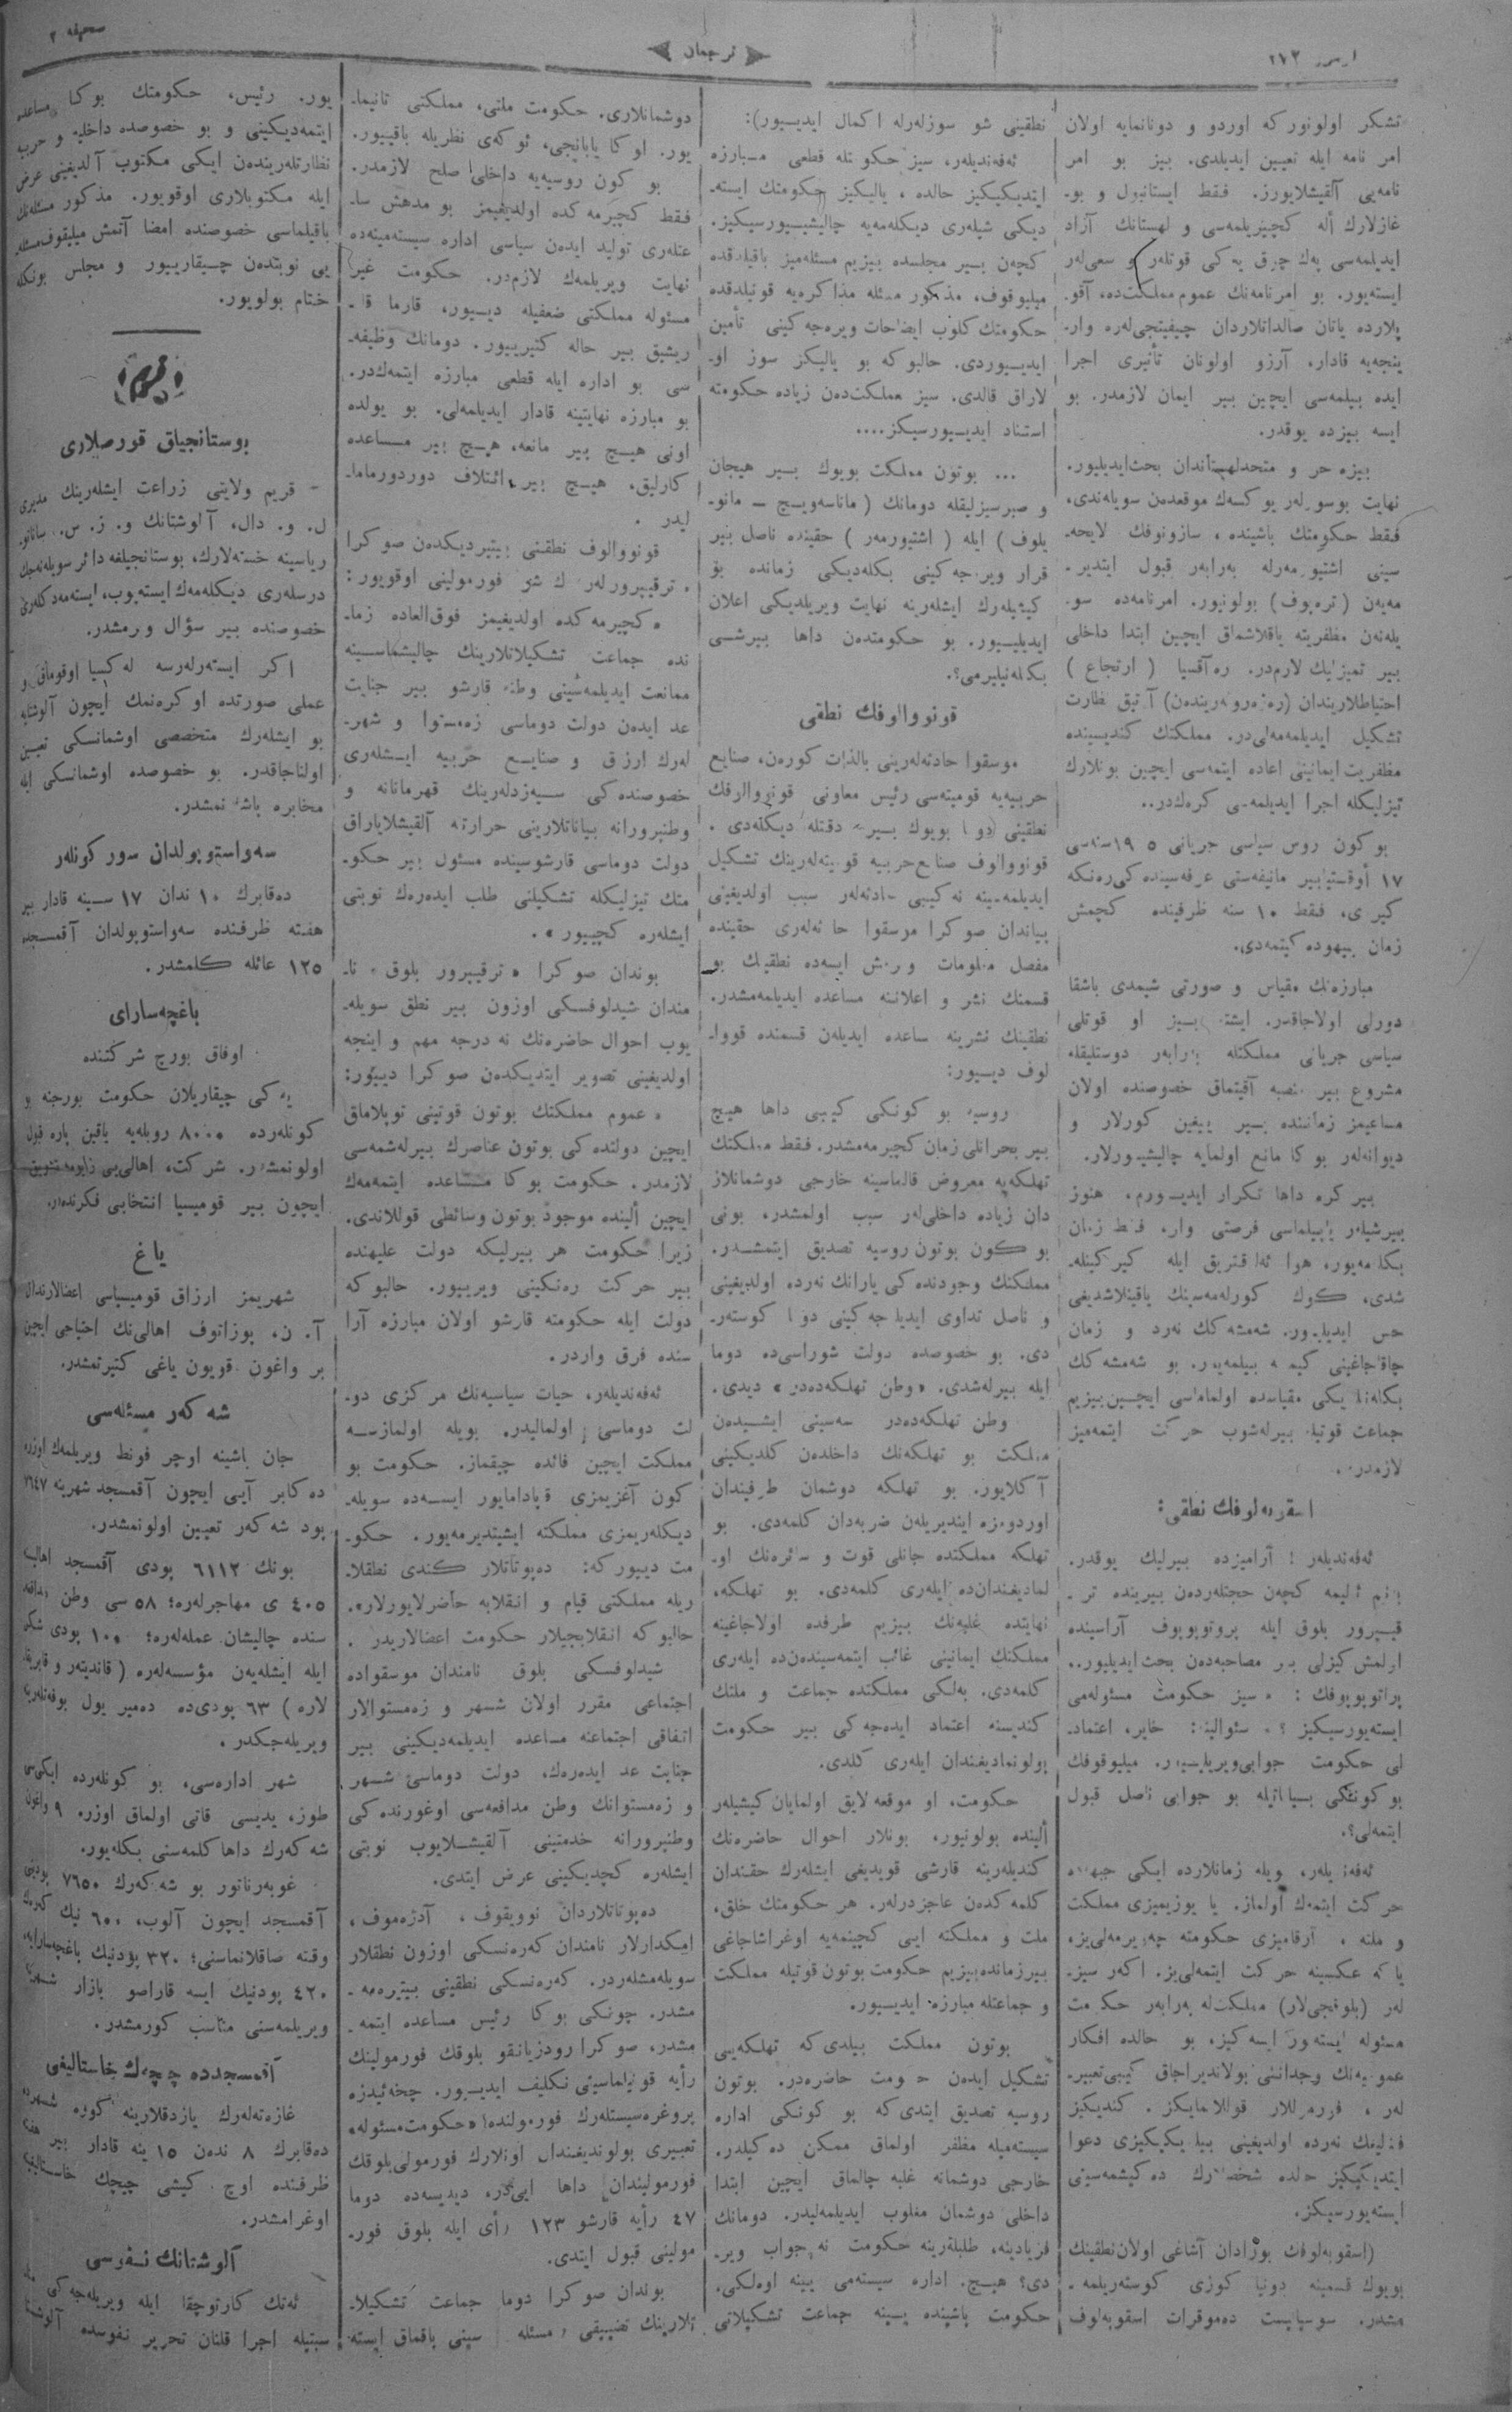 صحیفه ٢
ترجمان
٢٧٢
تشکر اولونور که اوردو و دونانمایه اولان
امر نامه ایله تعیین ایدیلدی. بیز بو امر
نامه‌یی آلقیشلایورز. فقط ایستانبول و بو-
غازلارك أله کچیریلمه‌سی و لهستانك آزاد
ایدیلمه‌سی یه‌ك چوق یه کی قوتلەر و سعی‌لەر
ایسته‌یور. بو امرنامه‌نك عموم مملکت‌ده، آقو-
پلارده یاتان صالداتلاردان چیفیتجی‌لەره وار-
ینجه‌یه قادار، آرزو اولونان تأثیری اجرا
ایده بیلمه‌سی ایچین بیر ایمان لازمدر. بو
ایسه بیزده یوقدر.
بیزه حر و متحد لهستاندان بحث ایدیلیور.
نهایت بوسوزلەر یوکسه‌ك موقعدەن سویله‌ندی،
فقط حکومتك باشینده، سازونوفك لایحه-
سینی اشتیورمەرله بەرابەر قبول ایتدیر-
مەیەن (ترەپوف) بولونیور. امرنامه‌ده سو-
یلەنەن مظفریته یاقلاشماق ایچین ابتدا داخلی
بیر تمیزلیك لازمدر. رەآقسیا (ارتجاع)
احتیاطلاریندان آرتیق نظارت
تشکیل ایدیلمەمەلی‌در. مملکتك کندیسینده
مظفریت ایمانینی اعاده ایتمه‌سی ایچین بونلارك
تیزلیکله اجرا ایدیلمه‌سی کرەك‌در..
بو کون روس سیاسی جریانی ١٩٠٥ سنه‌سی
١٧ أوقتیابیر مانیفه‌ستی عرفه‌سینده کی رەنکه
کیردی، فقط ١٠ سنه ظرفینده کچمش
زمان بیهوده کیتمه‌دی.
مبارزەنك مقیاس و صورتی شیمدی باشقا
دورلی اولاجاقدر. ایشته بیز او قوتلی
سیاسی جریانی مملکتله بەرابەر دوستلیقله
مشروع بیر منصبه آقیتماق خصوصنده اولان
مساعیمز زماننده بیر ییغین کورلار و
دیوانه‌لەر بوکا مانع اولمایه چالیشیورلار.
بیر کره داها تکرار ایدیورم، هنوز
بیرشیلەر یاپیلماسی فرصتی وار، فقط زمان
بکلەمەیور، هوا ئەلەقتریق ایله کیرکینلە-
شدی، کوك کورلەمەسینك یاقینلاشدیغی
حس ایدیلیور. شمشه‌كك نه‌رد و زمان
چاقاجاغینی کیمسه بیلمەیەر. بو شمشه‌كك
بکلەنیلدیکی مقیاسده اولماماسی ایچین بیزیم
جماعت قوتیله بیرلەشوب حرکت ایتمەمیز
لازمدر.
اسقوبەلوفك نطقی:
ئەفەندیلەر! آرامیزده بیرلیك یوقدر.
بنم ألیمه کچەن حجتلەردەن بیرینده تر-
قیپرور بلوق ایله پروتوپوپوف آراسینده
اولمش کیزلی بیر مصاحبه‌دەن بحث ایدیلیور..
پراتوپوپوفك: «سیز حکومت مسئوله‌می
ایسته‌یورسیکیز؟» سئوالینه: خایر، اعتماد-
لی حکومت جوابی ویریلیور. میلیوقوفك
بو کونکی بیاناتیله بو جوابی ناصل قبول
ایتمەلی؟.
ئەفەندیلەر، بویله زمانلارده ایکی جبهه‌ده
حرکت ایتمەك اولماز. یا یوزیمیزی مملکت
و ملته، آرقامیزی حکومته چەویرمەلی‌یز،
یا که عکسینه حرکت ایتمەلی‌یز. اکەر سیز-
لەر (بلوقجی‌لار) مملکت‌له بەرابەر حکومت
مسئوله ایسته‌یور ایسه‌کیز، بو حالده افکار
عمومیه‌نك وجدانینی بولاندیراجاق کیبی تعبیر-
لەر، فورمولالار قوللانمایکیز. کندیکیز
فنالیغك نەرده اولدیغینی بیلدیکیکیزی دعوا
ایتدیکیکیز حالده شخص‌لارك ده‌کیشمەسینی
ایسته‌یورسیکز.
(اسقوبەلوفك بوزادان آشاغی اولان نطقینك
بویوك قسمینه دونیا کوزی کوسته‌ریلمه-
مشدر. سوسیالیست دەموقرات اسقوبەلوف
نطقینی شو سوزلەرله اکمال ایدییور):
ئەفەندیلەر، سیز حکومتله قطعی مبارزه
ایتدیکیکیز حالده، یالیکیز حکومتك ایسته-
دیکی شیلەری دیکلەمه‌یه چالیشییورسیکیز.
کچەن بیر مجلسده بیزیم مسئله‌میز باقیلدقده
میلیوقوف، مذکور مسئله مذاکره‌یه قونیلدقده
حکومتك کلوب ایضاحات ویرەجەکینی تأمین
ایدییوردی. حالبوکه بو یالیکز سوز او-
لاراق قالدی. سیز مملکت‌دەن زیاده حکومته
استناد ایدییورسیکز....
... بوتون مملکت بویوك بیر هیجان
و صبرسیزلیقله دومانك (ماناسه‌ویچ – مانو-
یلوف) ایله (اشتیورمەر) حقینده ناصل بیر
قرار ویرجەکینی بکلەدیکی زمانده بو
کیشیلەرك ایشلەرینه نهایت ویریلدیکی اعلان
ایدیلییور. بو حکومتدەن داها بیرشی
بکلەنیلیرمی؟.
قونووالوفك نطقی
موسقوا حادثه‌لەرینی بالذات کورەن، صنایع
حربیه‌یه قومیته‌سی رئیس معاونی قونووالوفك
نطقینی دوما بویوك بیر دقتله دیکلەدی.
قونووالوف صنایع حربیه قومیته‌لەرینك تشکیل
ایدیلمەسینه نه کیبی حادثه‌لەر سبب اولدیغینی
بیاندان صوکرا موسقوا حادثه‌لەری حقینده
مفصل معلومات ویرمش ایسه‌ده نطقینك بو
قسمنك نشر و اعلاننه مساعده ایدیلمەمشدر.
نطقینك نشرینه مساعده ایدیلەن قسمنده قونووا-
لوف دیییور:
روسیه بو کونکی کیبی داها هیچ
بیر بحرانلی زمان کچیرمەمشدر. فقط مملکتك
تهلکه‌یه معروض قالماسینه خارجی دوشمانلار
دان زیاده داخلی‌لەر سبب اولمشدر، بونی
بو کون بوتون روسیه تصدیق ایتمشدر.
مملکتك وجودنده کی یارانك نەرده اولدیغینی
و ناصل تداوی ایدیله جەکینی دوما کوستەر-
دی. بو خصوصده دولت شوراسی‌ده دوما
ایله بیرلەشدی. «وطن تهلکه‌ده‌در» دیدی.
وطن تهلکه‌ده‌در سه‌سینی ایشیدەن
مملکت بو تهلکه‌نك داخلدەن کلدیکینی
آکلایور. بو تهلکه دوشمان طرفیندان
اوردومزه ایندیریلەن ضربه‌دان کلمه‌دی. بو
تهلکه مملکتده جانلی قوت و سائره‌نك او-
لمادیغندان‌ده ایلەری کلمه‌دی. بو تهلکه،
نهایتده غلبه‌نك بیزیم طرفده اولاجاغینه
مملکتك ایمانینی غائب ایتمەسیندەن‌ده ایلەری
کلمه‌دی. بەلکی مملکتده جماعت و ملتك
کندیسنه اعتماد ایده‌جه‌کی بیر حکومت
بولونمادیغندان ایلەری کلدی.
حکومت، او موقعه لایق اولمایان کیشیلەر
ألینده بولونیور، بونلار احوال حاضره‌نك
کندیلەرینه قارشی قویدیغی ایشلەرك حقندان
کلمه کدەن عاجزدرلەر. هر حکومتك خلق،
ملت و مملکته ایی کچینمه‌یه اوغراشاجاغی
بیرزمانده بیزیم حکومت بوتون قوتیله مملکت
و جماعتله مبارزه ایدییور.
بوتون مملکت بیلدی که تهلکه‌یی
تشکیل ایدەن حکومت حاضره‌در. بوتون
روسیه تصدیق ایتدی که بو کونکی اداره
سیسته‌میله مظفر اولماق ممکن ده‌کیلدر.
خارجی دوشمانه غلبه چالماق ایچین ابتدا
داخلی دوشمان مغلوب ایدیلمەلیدر. دومانك
فریادینه، طلبلەرینه حکومت نه جواب ویر-
دی؟ هیچ. اداره سیسته‌می یینه اوه‌لکی.
حکومت باشینده یینه جماعت تشکیلاتی
دوشمانلاری. حکومت ملتی، مملکتی تانیما-
یور. اوکا یابانجی، ئوکەی نظریله باقییور.
بو کون روسیه‌یه داخلی صلح لازمدر.
فقط کچیرمه کده اولدیغیمز بو مدهش سا-
عتلەری تولید ایدەن سیاسی اداره سیسته‌مینه‌ده
نهایت ویریلمەك لازمدر. حکومت غیر
مسئوله مملکتی ضعفیله دییور، قارما قا-
ریشیق بیر حاله کتیرییور. دومانك وظیفه-
سی بو اداره ایله قطعی مبارزه ایتمەك‌در.
بو مبارزه نهایتینه قادار ایدیلمەلی. بو یولده
اونی هیچ بیر مانعه، هیچ بیر مساعده
کارلیق، هیچ بیر ائتلاف دوردورماما-
لیدر.
قونووالوف نطقنی بیتیردیکدەن صوکرا
ترقیپرورلەرك شو فورمولینی اوقویور:
«کچیرمه‌کده اولدیغیمز فوق‌العاده زما-
نده جماعت تشکیلاتلارینك چالیشماسینه
ممانعت ایدیلمەسینی وطنه قارشو بیر جنایت
عد ایدەن دولت دوماسی زه‌مستوا و شهر-
لەرك ارزاق و صنایع حربیه ایشلەری
خصوصنده کی سییه‌زدلەرینك قهرمانانه و
وطنپرورانه بیاناتلارینی حرارتله آلقیشلایاراق
دولت دوماسی قارشوسینده مسئول بیر حکو-
متك تیزلیکله تشکیلنی طلب ایده‌رەك نوبتی
ایشلەره کچییور».
بوندان صوکرا «ترقیپرور بلوق» نا-
مندان شیدلوفسکی اوزون بیر نطق سویلە-
یوب احوال حاضره‌نك نه درجه مهم و اینجه
اولدیغینی تصویر ایتدیکدەن صوکرا دییور:
«عموم مملکتك بوتون قوتینی توپلاماق
ایچین دولتده کی بوتون عناصرك بیرلەشمەسی
لازمدر. حکومت بوکا مساعده ایتمەمەك
ایچین ألینده موجود بوتون وسائطی قوللاندی.
زیرا حکومت هر بیرلیکه دولت علیهنده
بیر حرکت رەنکینی ویرییور. حالبوکه
دولت ایله حکومته قارشو اولان مبارزه آرا
سنده فرق واردر.
ئەفەندیلەر، حیات سیاسیه‌نك مرکزی دو-
لت دوماسی اولمالیدر. بویله اولمازسه
مملکت ایچین فائده چیقماز. حکومت بو
کون آغزیمزی قپادامایور ایسه‌ده سویلە-
دیکلەریمزی مملکته ایشیتدیرمه‌یور. حکو-
مت دییورکه: ده‌پوتاتلار کندی نطقلا-
ریله مملکتی قیام و انقلابه حاضرلایورلار».
حالبوکه انقلابجیلار حکومت اعضالاریدر.
شیدلوفسکی بلوق نامندان موسقواده
اجتماعی مقرر اولان شهر و زه‌مستوالار
اتفاقی اجتماعنه مساعده ایدیلمەدیکینی بیر
جنایت عد ایده‌رەك، دولت دوماسی شهر
و زه‌مستوانك وطن مدافعه‌سی اوغورنده کی
وطنپرورانه خدمتینی آلقیشلایوب نوبتی
ایشلەره کچدیکینی عرض ایتدی.
ده‌پوتاتلاردان نوویقوف، آدژەموف،
امکدارلار نامندان که‌رەنسکی اوزون نطقلار
سویلەمشلەردر. که‌رەنسکی نطقینی بیتیرمه-
مشدر. چونکی بوکا رئیس مساعده ایتمه-
مشدر، صوکرا رودزیانقو بلوقك فورمولینك
رأیه قونیلماسینی تکلیف ایدییور. چخه‌ئیدزه
پروغره‌سیستلەرك فورمولنده «حکومت مسئوله»
تعبیری بولوندیغندان اونلارك فورمولی بلوقك
فورمولیندان داها ایی‌در، دیدیسه‌ده دوما
٤٧ رأیه قارشو ١٢٣ رأی ایله بلوق فور-
مولینی قبول ایتدی.
بوندان صوکرا دوما جماعت تشکیلا-
تلارینك تضییقی مسئله سینی باقماق ایسته-
یور. رئیس، حکومتك بوکا مساعده
ایتمەدیکینی و بو خصوصده داخلیه و حربیه
نظارتلەریندەن ایکی مکتوب آلدیغینی عرض
ایله مکتوبلاری اوقویور. مذکور مسئله‌نك
باقیلماسی خصوصنده امضا آتمش میلیقوف مسئله-
یی نوبتدەن چیقارییور و مجلس بونکله
ختام بولویور.
بوستانجیاق قورصلاری
- قریم ولایتی زراعت ایشلەرینك مدیری
ل. و. دال، آلوشتانك و. ز. س. ساناتو-
ریاسینه خسته‌لارك، بوستانجیلغه دائر سویلەنەجك
درسلەری دیکلەمەك ایسته‌یوب، ایسته‌مەدکلەری
خصوصنده بیر سؤال ویرمشدر.
اکر ایستەرلەرسه لەکسیا اوقوماق و
عملی صورتده اوکرەنمك ایچون آلوشتایه
بو ایشلەرك متخصصی اوشمانسکی تعیین
اولناجاقدر. بو خصوصده اوشمانسکی ایله
مخابره باشلانمشدر.
سه‌واستوپولدان سور کونلەر
ده‌قابرك ١٠ ندان ١٧ سینه قادار بیر
هفته ظرفنده سه‌واستوپولدان آقمسجده
١٢٥ عائله کلمشدر.
باغچه‌سارای
اوفاق بورج شرکتنده
یەکی چیقاریلان حکومت بورجنه بو
کونلەرده ٨٠٠٠ روبله‌یه یاقین پاره قبول
اولونمشدر. شرکت، اهالی‌یی زایومه تشویق
ایچون بیر قومیسیا انتخابی فکرنده‌در.
یاغ
شهریمز ارزاق قومیسیاسی اعضالارندان
آ. ن. بوزاتوف اهالی‌نك احتیاجی ایچین
بر واغون قویون یاغی کتیرتمشدر.
شه کەر مسئله‌سی
جان باشینه اوچر فونط ویریلمەك اوزره
ده‌کابر آیی ایچون آقمسجد شهرینه ٧٦٤٧
پود شه‌کەر تعیین اولونمشدر.
بونك ٦١١٢ پودی آقمسجد اهالیسنه
٤٠٥ ی مهاجرلەره؛ ٥٨ سی وطن مدافعه
سنده چالیشان عمله‌لەره؛ ١٠٠٠ پودی شکر
ایله ایشلەیەن مؤسسه‌لەره (قاندیتەر و فابریقا
لاره) ٦٣ پودی‌ده ده‌میر یول بوفه‌تلەرینه
ویریله‌جکدر.
شهر اداره‌سی، بو کونلەرده ایکی‌سی
طوز، یدیسی قاتی اولماق اوزره ٩ واغون
شه‌کەرك داها کلمه‌سنی بکله‌یور.
غوبەرناتور بو شه‌کەرك ٧٦٥٠ پودینی
آقمسجد ایچون آلوب، ٦٠٠ نیك کەرەك
وقته صاقلانماسنی؛ ٣٢٠ پودنیك باغچه‌سارایه،
٤٢٠ پودنیك ایسه قاراصو بازار شهرینه
ویریلمەسنی مناسب کورمشدر.
آقمسجدده چیچەك خاستالیغی
غازه‌ته‌لەرك یازدقلارینه کوره شهرده
ده‌قابرك ٨ ندەن ١٥ ینه قادار بیر هفته
ظرفنده اوچ کیشی چیچك خاستالیغینه
اوغرامشدر.
آلوشتانك نفوسی
ئەتك کارتوچقا ایله ویریله‌جه کی
سببیله اجرا قلنان تحریر نفوسده آلوشتا